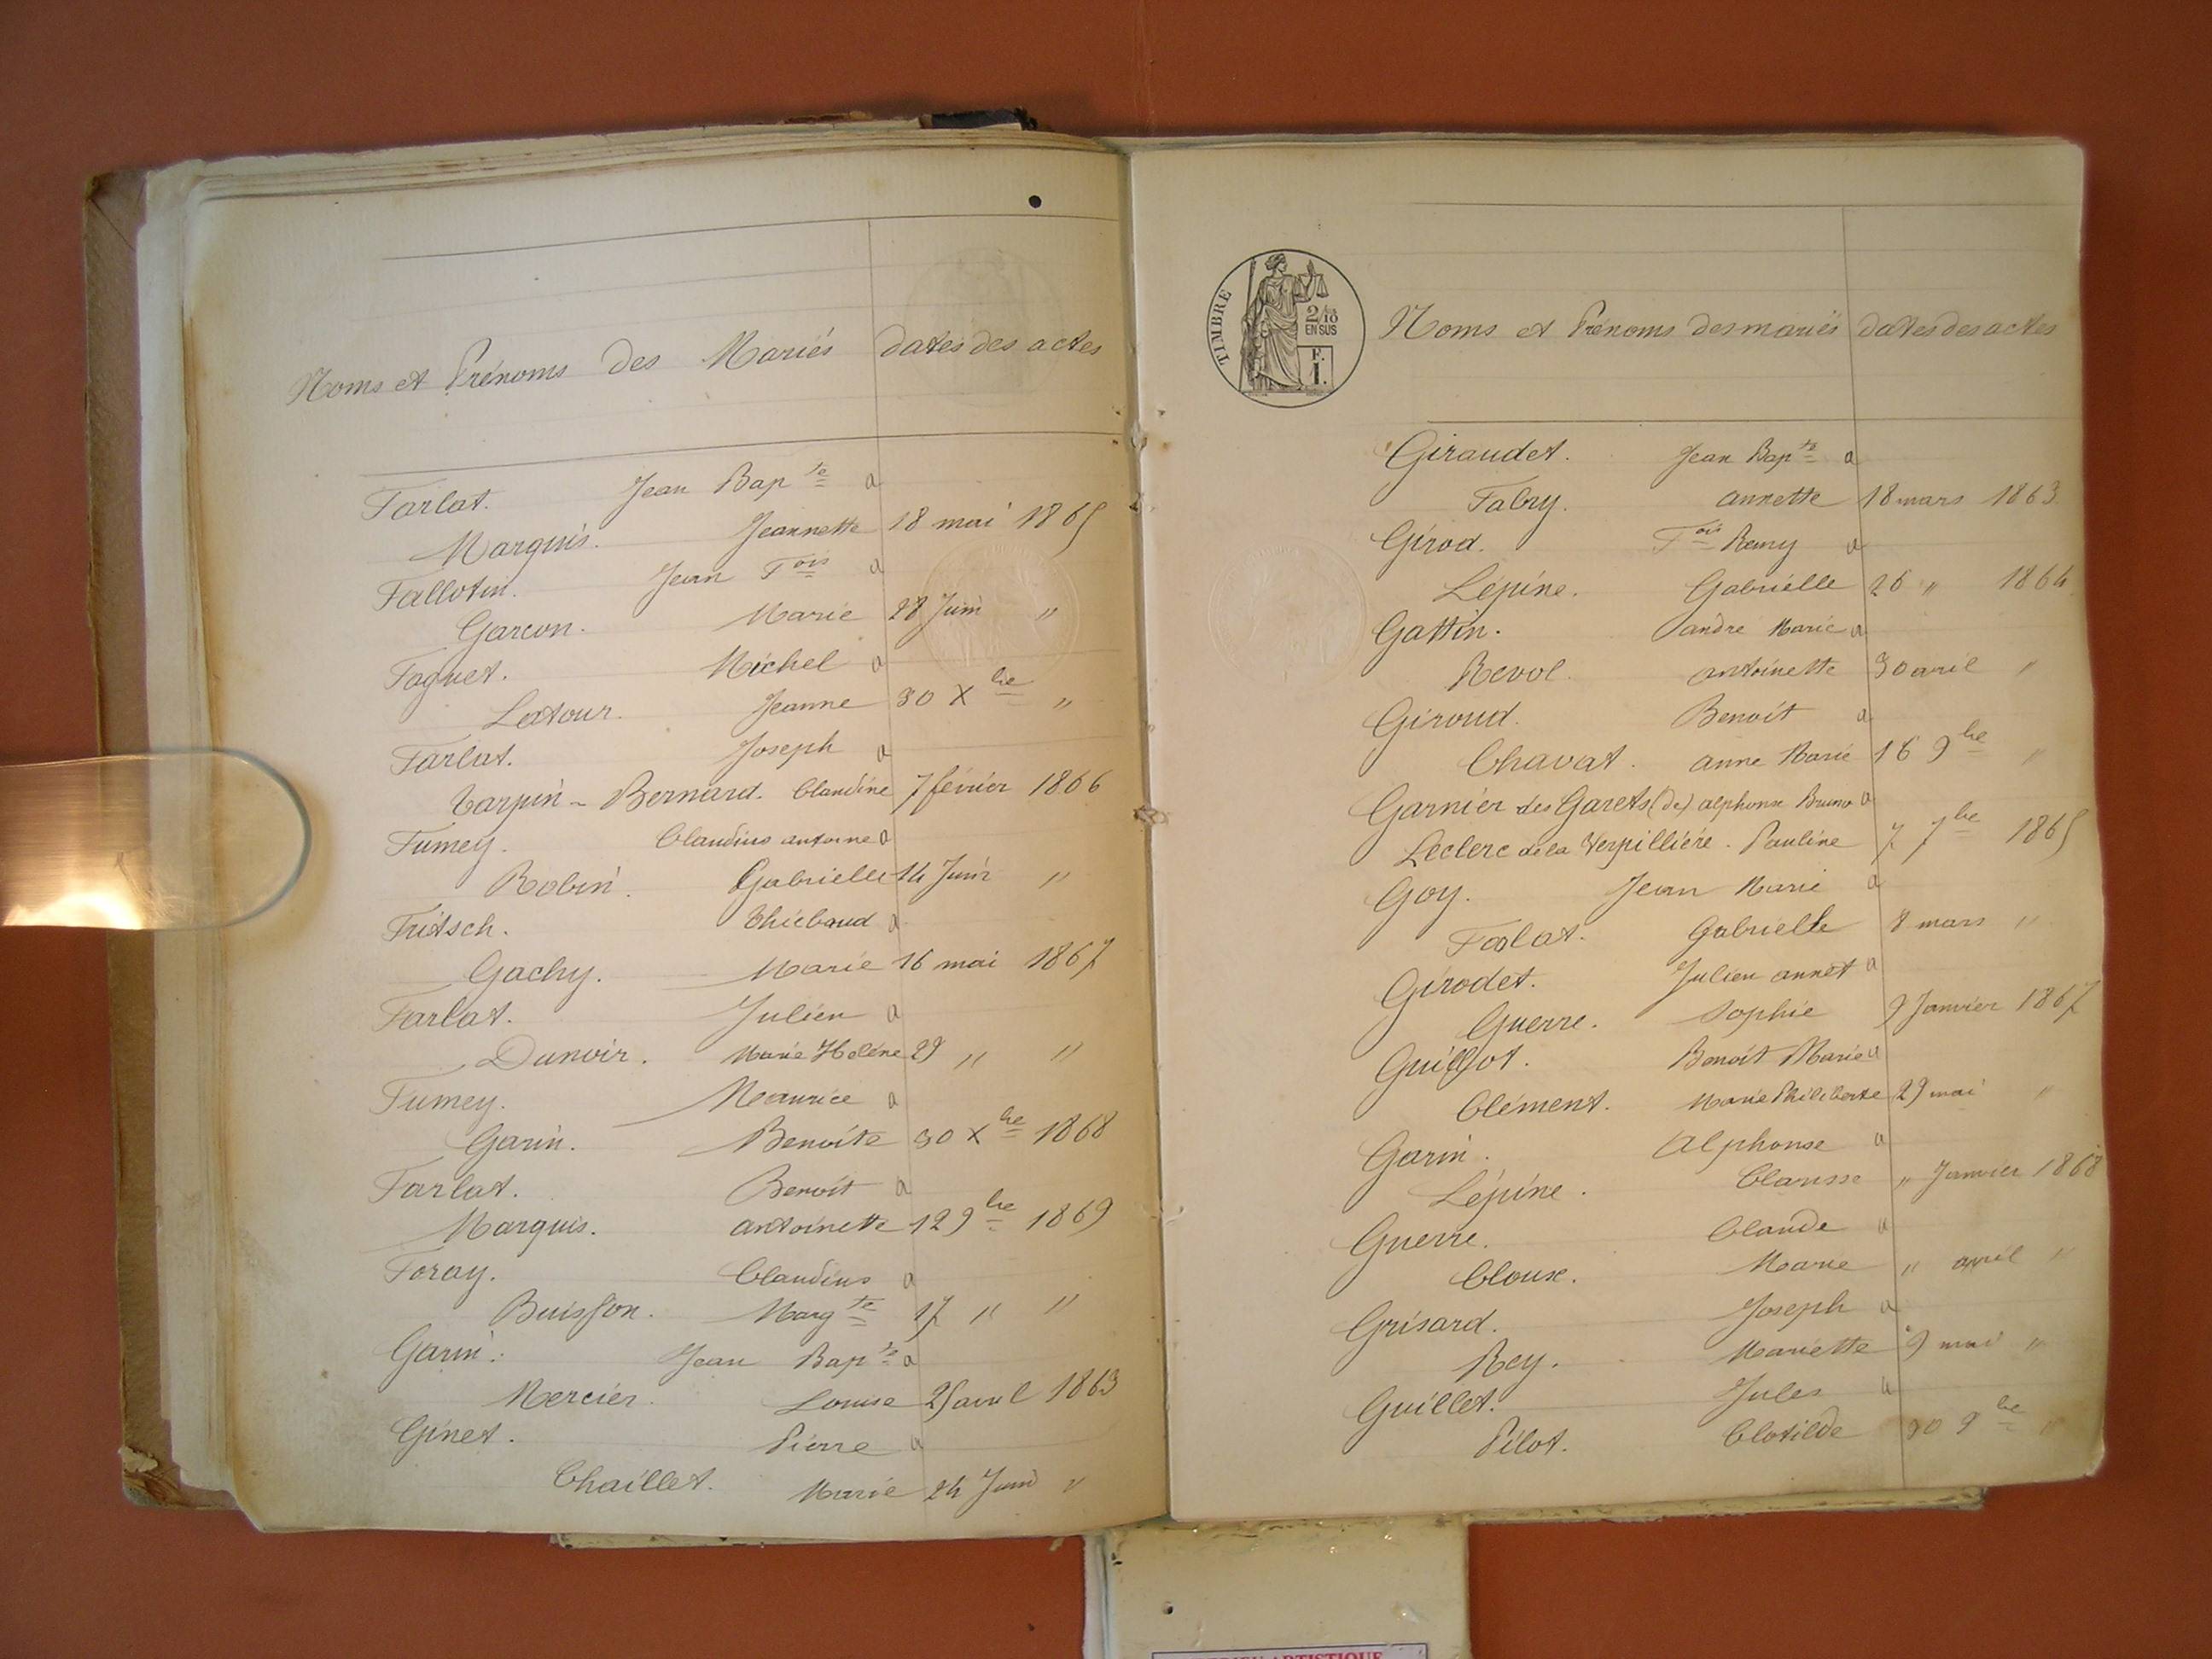 Noms et Prénoms des Mariés dates des actes
Farlat. Jean Bap te a
Marquis. Jeannette 18 mai 1865
Fallotin. Jean F ois a
Garcon. Marie 28 Juin "
Faguet. Michel a
Latour. Jeanne 30 X bre "
Farlat. Joseph a
Tarpin - Bernard. Claudine 7 février 1866
Fumey. Claudius antoine a
Robin. Gabrielle 14 Juin "
Fritsch. Thiébaud a
Gachy. Marie 16 mai 1867
Farlat. Julien a
Dunoir. Marie Helène 29 " "
Fumey. Maurice a
Garin. Benoite 30 X bre 1868
Farlat. Benoît a
Marquis. antoinette 12 9 bre 1869
Foray. Claudius a
Buisson. Marg te 17 " "
Garin. Jean Bap te a
Mercier. Louise 25 avril 1863
Ginet. Pierre a
Chaillet. Marie 24 Juin "
TIMBRE
2/10
EN SUS
F.
I.
Noms et Prénoms des mariés dates des actes
Giraudet. Jean Bap te a
Fabry. annette 18 mars 1863
Girod. F ois Remy a
Lépine. Gabrielle 26 " 1864
Gattin. andré Marie a
Revol. antoinette 30 avril "
Giroud. Benoit a
Chavat. anne Marie 16 9 bre "
Garnier des Garets (de) alphonse Bruno a
Leclerc de la Verpillière. Pauline 7 7 bre 1865
Goy. Jean Marie a
Farlat. Gabrielle 8 mars "
Girodet. Julien annet a
Guerre. Sophie 9 Janvier 1867
Guillot. Benoit Marie a
Clément. Marie Philiberte 29 mai "
Garin. Alphonse a
Lépine. Clarisse " Janvier 1868
Guerre. Claude a
Cloux. Marie " avril "
Grisard. Joseph a
Rey. Mariette 9 mai "
Guillet. Jules a
Pilot. Clotilde 30 9 bre "